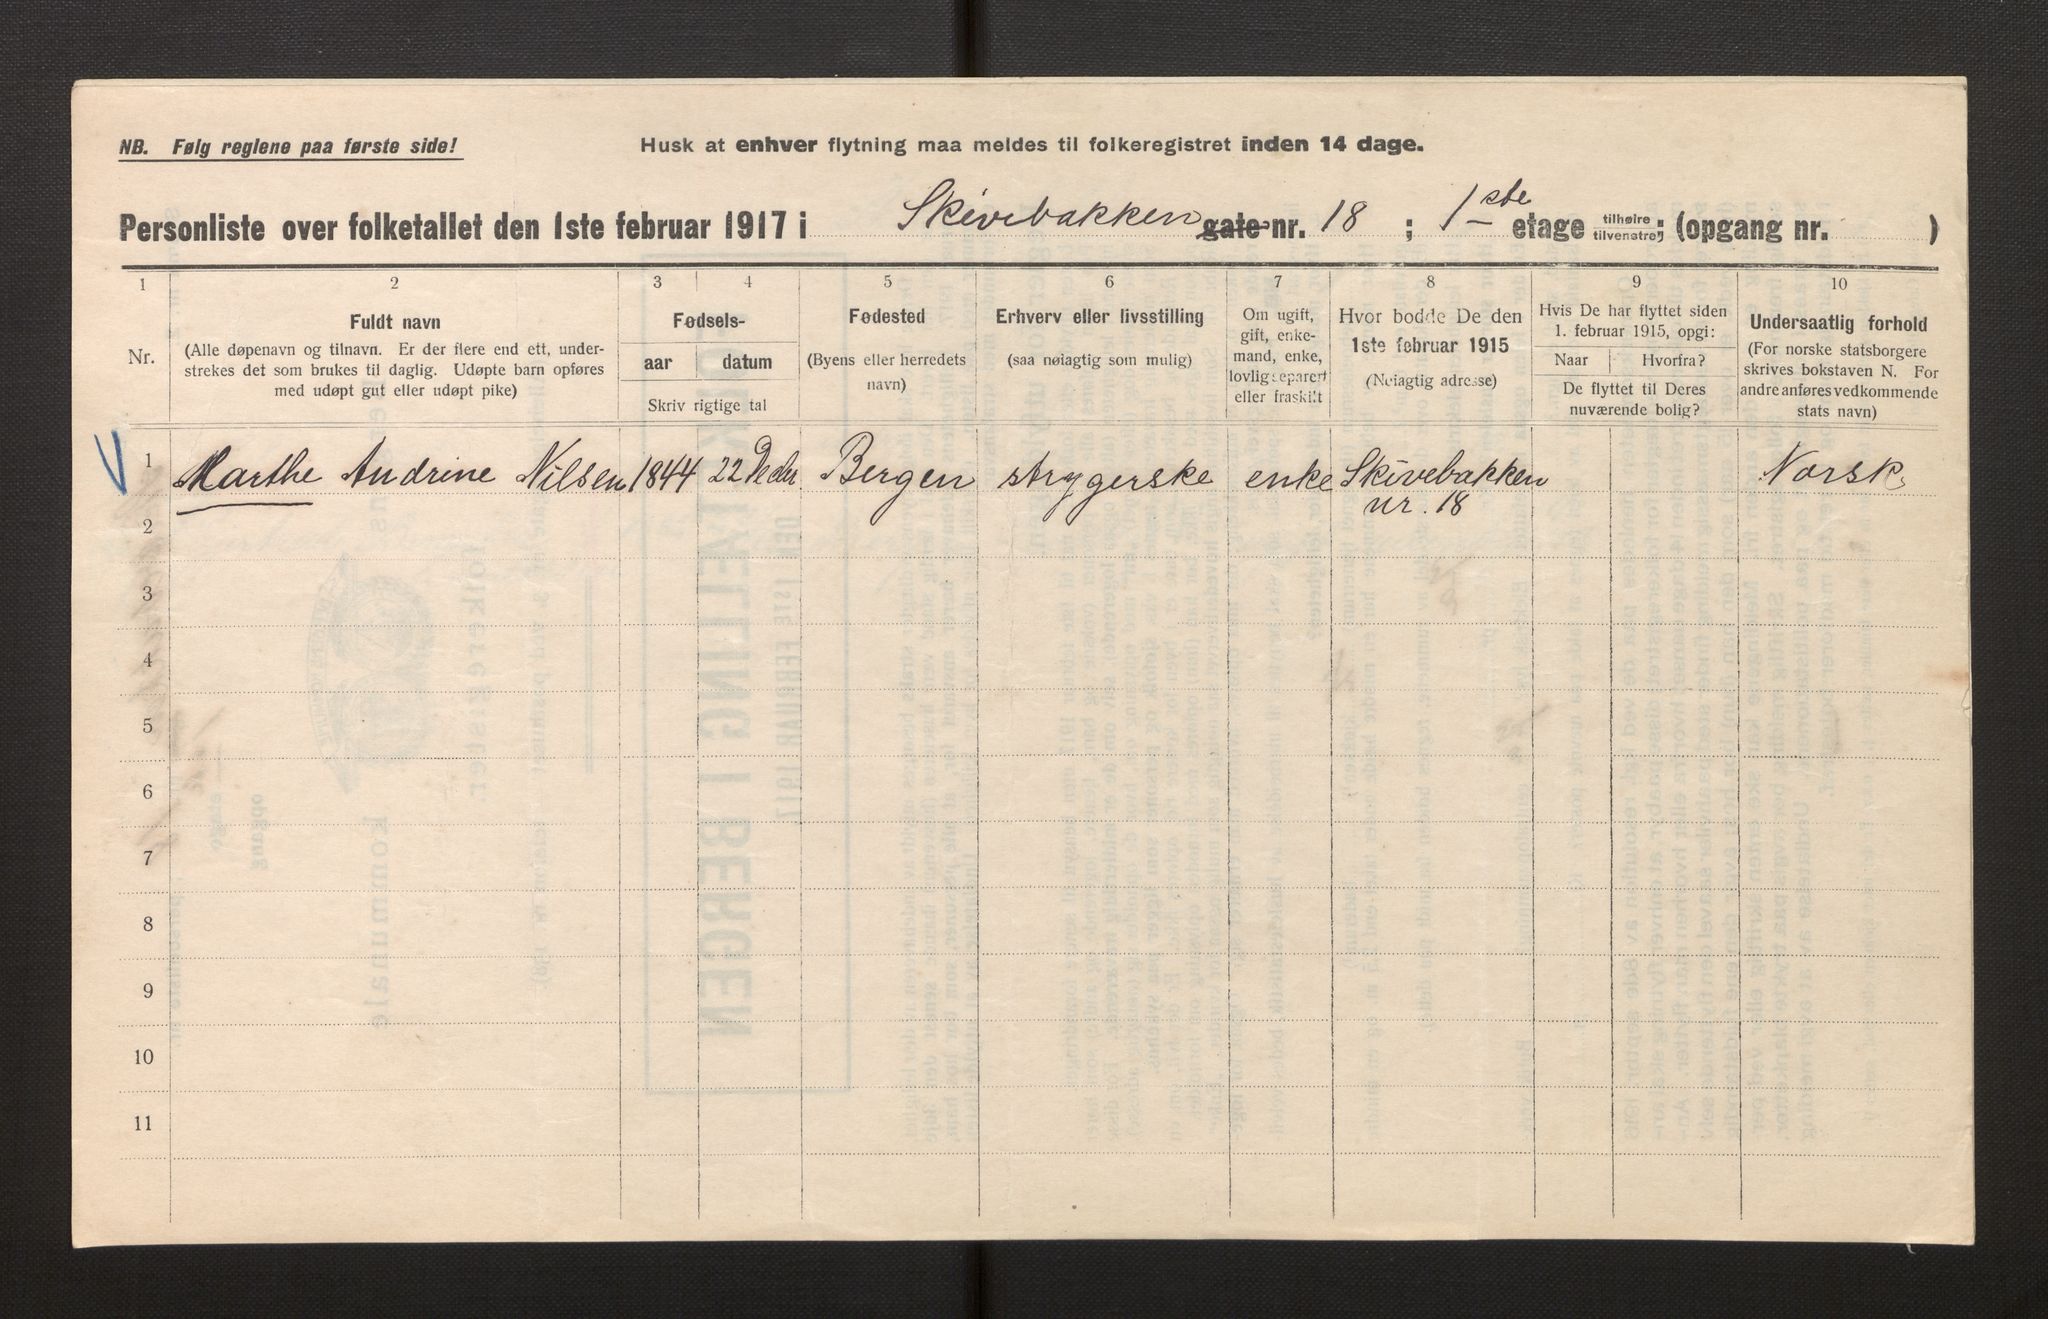 NB. Følg reglene paa første side!
Husk at enhver flytning maa meldes til folkeregistret inden 14 dage.
Personliste over folketallet den 1ste februar 1917 i Skivebakken gate nr. 18 ; 1ste etage tilhøire tilvenstre; (opgang nr. )
1 2 3 4 5 6 7 8 9 10
Nr.
Fuldt navn
(Alle døpenavn og tilnavn. Er der flere end ett, under-
strekes det som brukes til daglig. Udøpte barn opføres
med udøpt gut eller udøpt pike)
Fødsels-
aar datum
Skriv rigtige tal
Fødested
(Byens eller herredets
navn)
Erhverv eller livsstilling
(saa nøiagtig som mulig)
Om ugift,
gift, enke-
mand, enke,
lovlig separert
eller fraskilt
Hvor bodde De den
1ste februar 1915
(Nøiagtig adresse)
Hvis De har flyttet siden
1. februar 1915, opgi:
Naar Hvorfra?
De flyttet til Deres
nuværende bolig?
Undersaatlig forhold
(For norske statsborgere
skrives bokstaven N. For
andre anføres vedkommende
stats navn)
1 Marthe Andrine Nilsen 1844 22 Decbr. Bergen strygerske enke Skivebakken Norsk
nr. 18
2
3
4
5
6
7
8
9
10
11